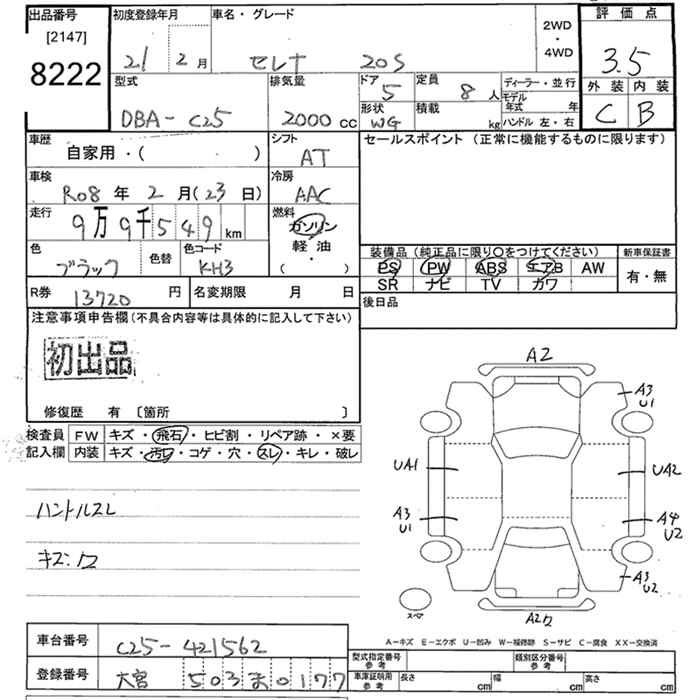 出品番号
[2147]
8222
初度登録年月
21 2 月
車名・グレード
セレナ 20S
2WD
・
4WD
評価点
3.5
外装 内装
C B
型式
DBA-C25
排気量
2000 cc
ドア
5
形状
WG
定員
8 人
積載
kg
ディーラー・並行
モデル
年式 年
ハンドル 左・右
車歴
自家用・( )
シフト
AT
セールスポイント (正常に機能するものに限ります)
車検
R08 年 2 月(23 日)
冷房
AAC
走行
9万9千549 km
燃料
ガソリン
軽油
( ・ )
色
ブラック
色替
色コード
KH3
装備品(純正品に限り○をつけてください)
PS PW ABS エアB AW
SR ナビ TV カワ
新車保証書
有・無
R券
13720 円
名変期限 月 日
後日品
注意事項申告欄(不具合内容等は具体的に記入して下さい)
初出品
修復歴 有 〔箇所 〕
検査員
記入欄
FW キズ・飛石・ヒビ割・リペア跡・×要
内装 キズ・汚レ・コゲ・穴・スレ・キレ・破レ
ハンドルスレ
キズ:ワ
A2
A3
U1
UA1
UA2
A3
U1
A4
U2
A3
U2
スペア
A2ワ
A-キズ E-エクボ U-凹み W-補修跡 S-サビ C-腐食 XX-交換済
車台番号
C25-421562
登録番号
大宮 503ま0177
型式指定番号
参考
類別区分番号
参考
車庫証明用
参考
長さ cm
幅 cm
高さ cm